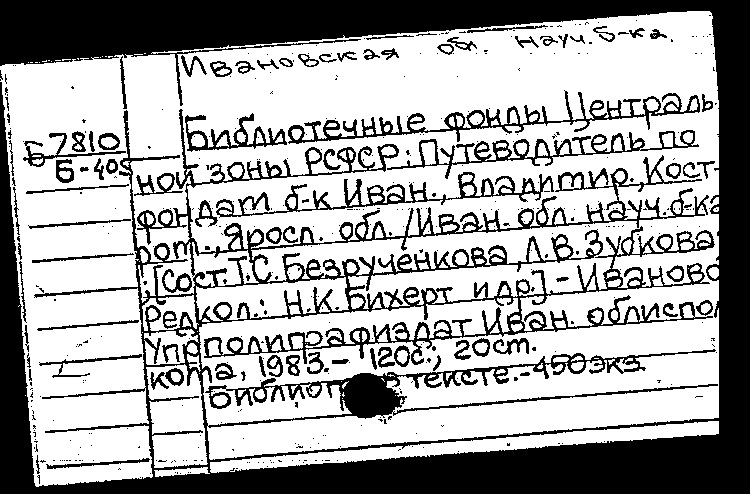 Ивановская обл. науч. б-ка.
Библиотечные фонды Централь
Б 7810
Б-405
ной зоны РСФСР: Путеводитель по
фондам б-к Иван., Владимир., Кост-
ром., Яросл. обл. / Иван. обл. науч. б-ка
; [Сост. Т.С. Безрученкова, Л.В. Зубкова
Редкол.: Н.К. Бихерт и др.]. - Иваново
Упрполиграфиздат Иван. облиспол
кома, 1983. - 120с.; 20см.
Библиогр. в тексте. - 450экз.